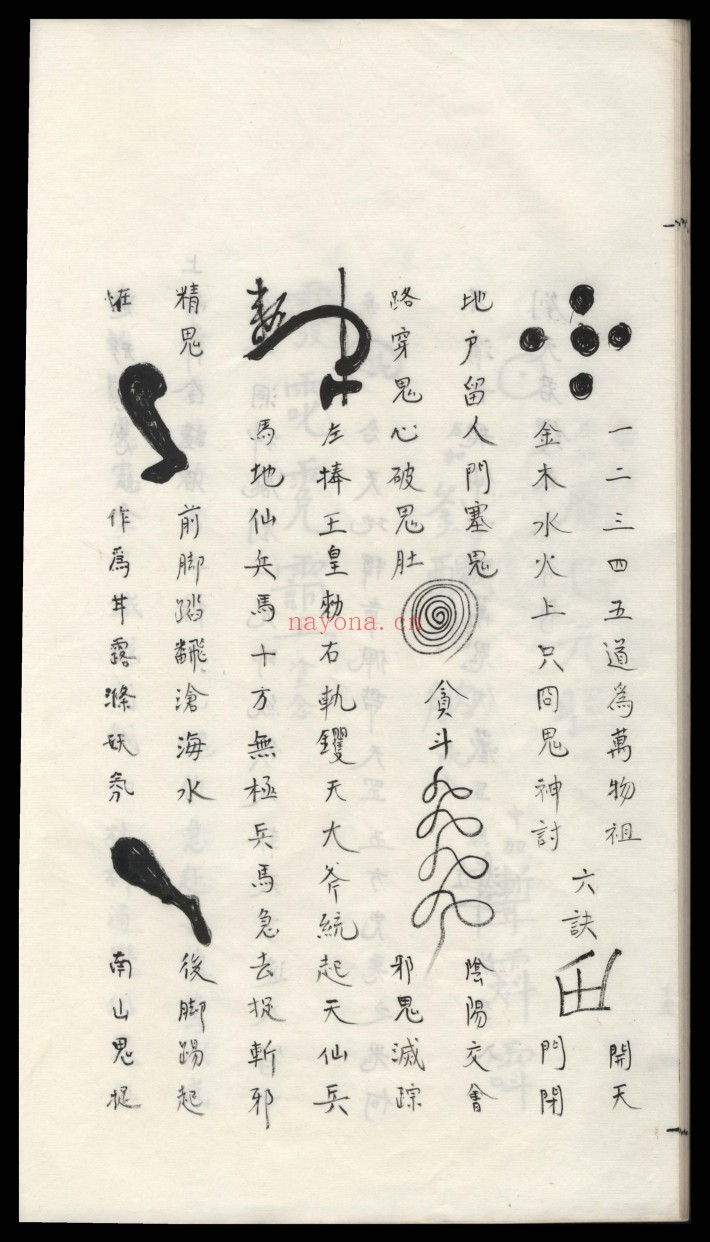 一二三四五道為萬物祖
金木水火上只鬼神討
六訣
開天
門閉
地户留人門塞鬼
陰陽交會
路穿鬼心破鬼肚
貪斗
邪鬼滅踪
左捧王皇勅右軌钁天大斧統起天仙兵
馬地仙兵馬十方無極兵馬急去捉斬邪
精鬼
前脚踏飜滄海水
後脚踢起
作為甘露滌妖氛
南山鬼捉
nayona.cn